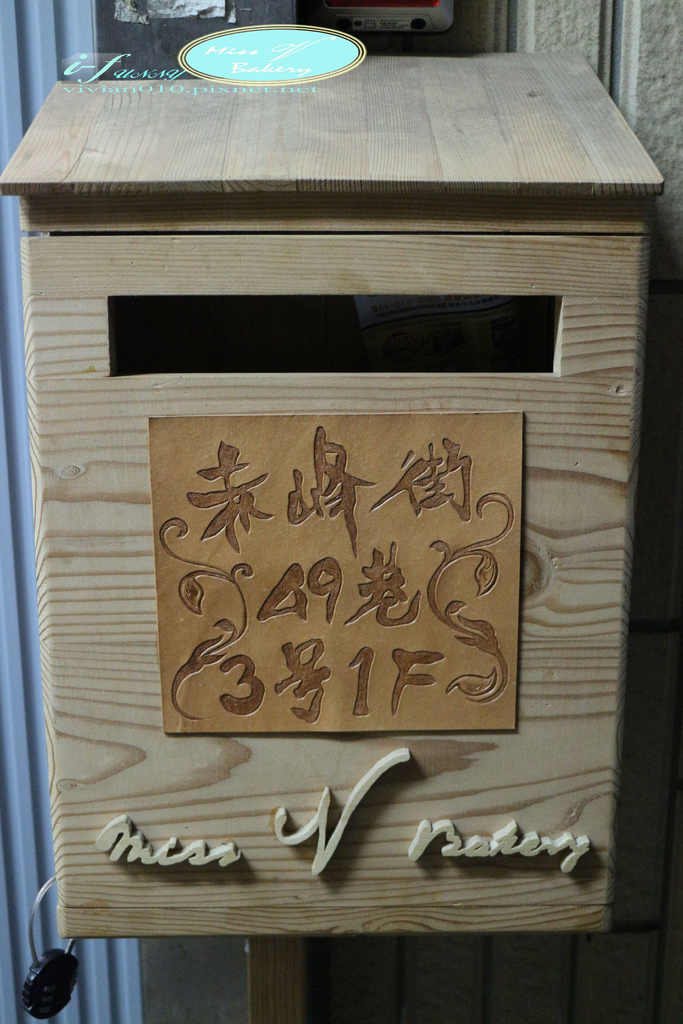 Miss V
Bakery
i-Funny
vivian010.pixnet.net
赤峰街
49巷
3号1F
Miss V Bakery